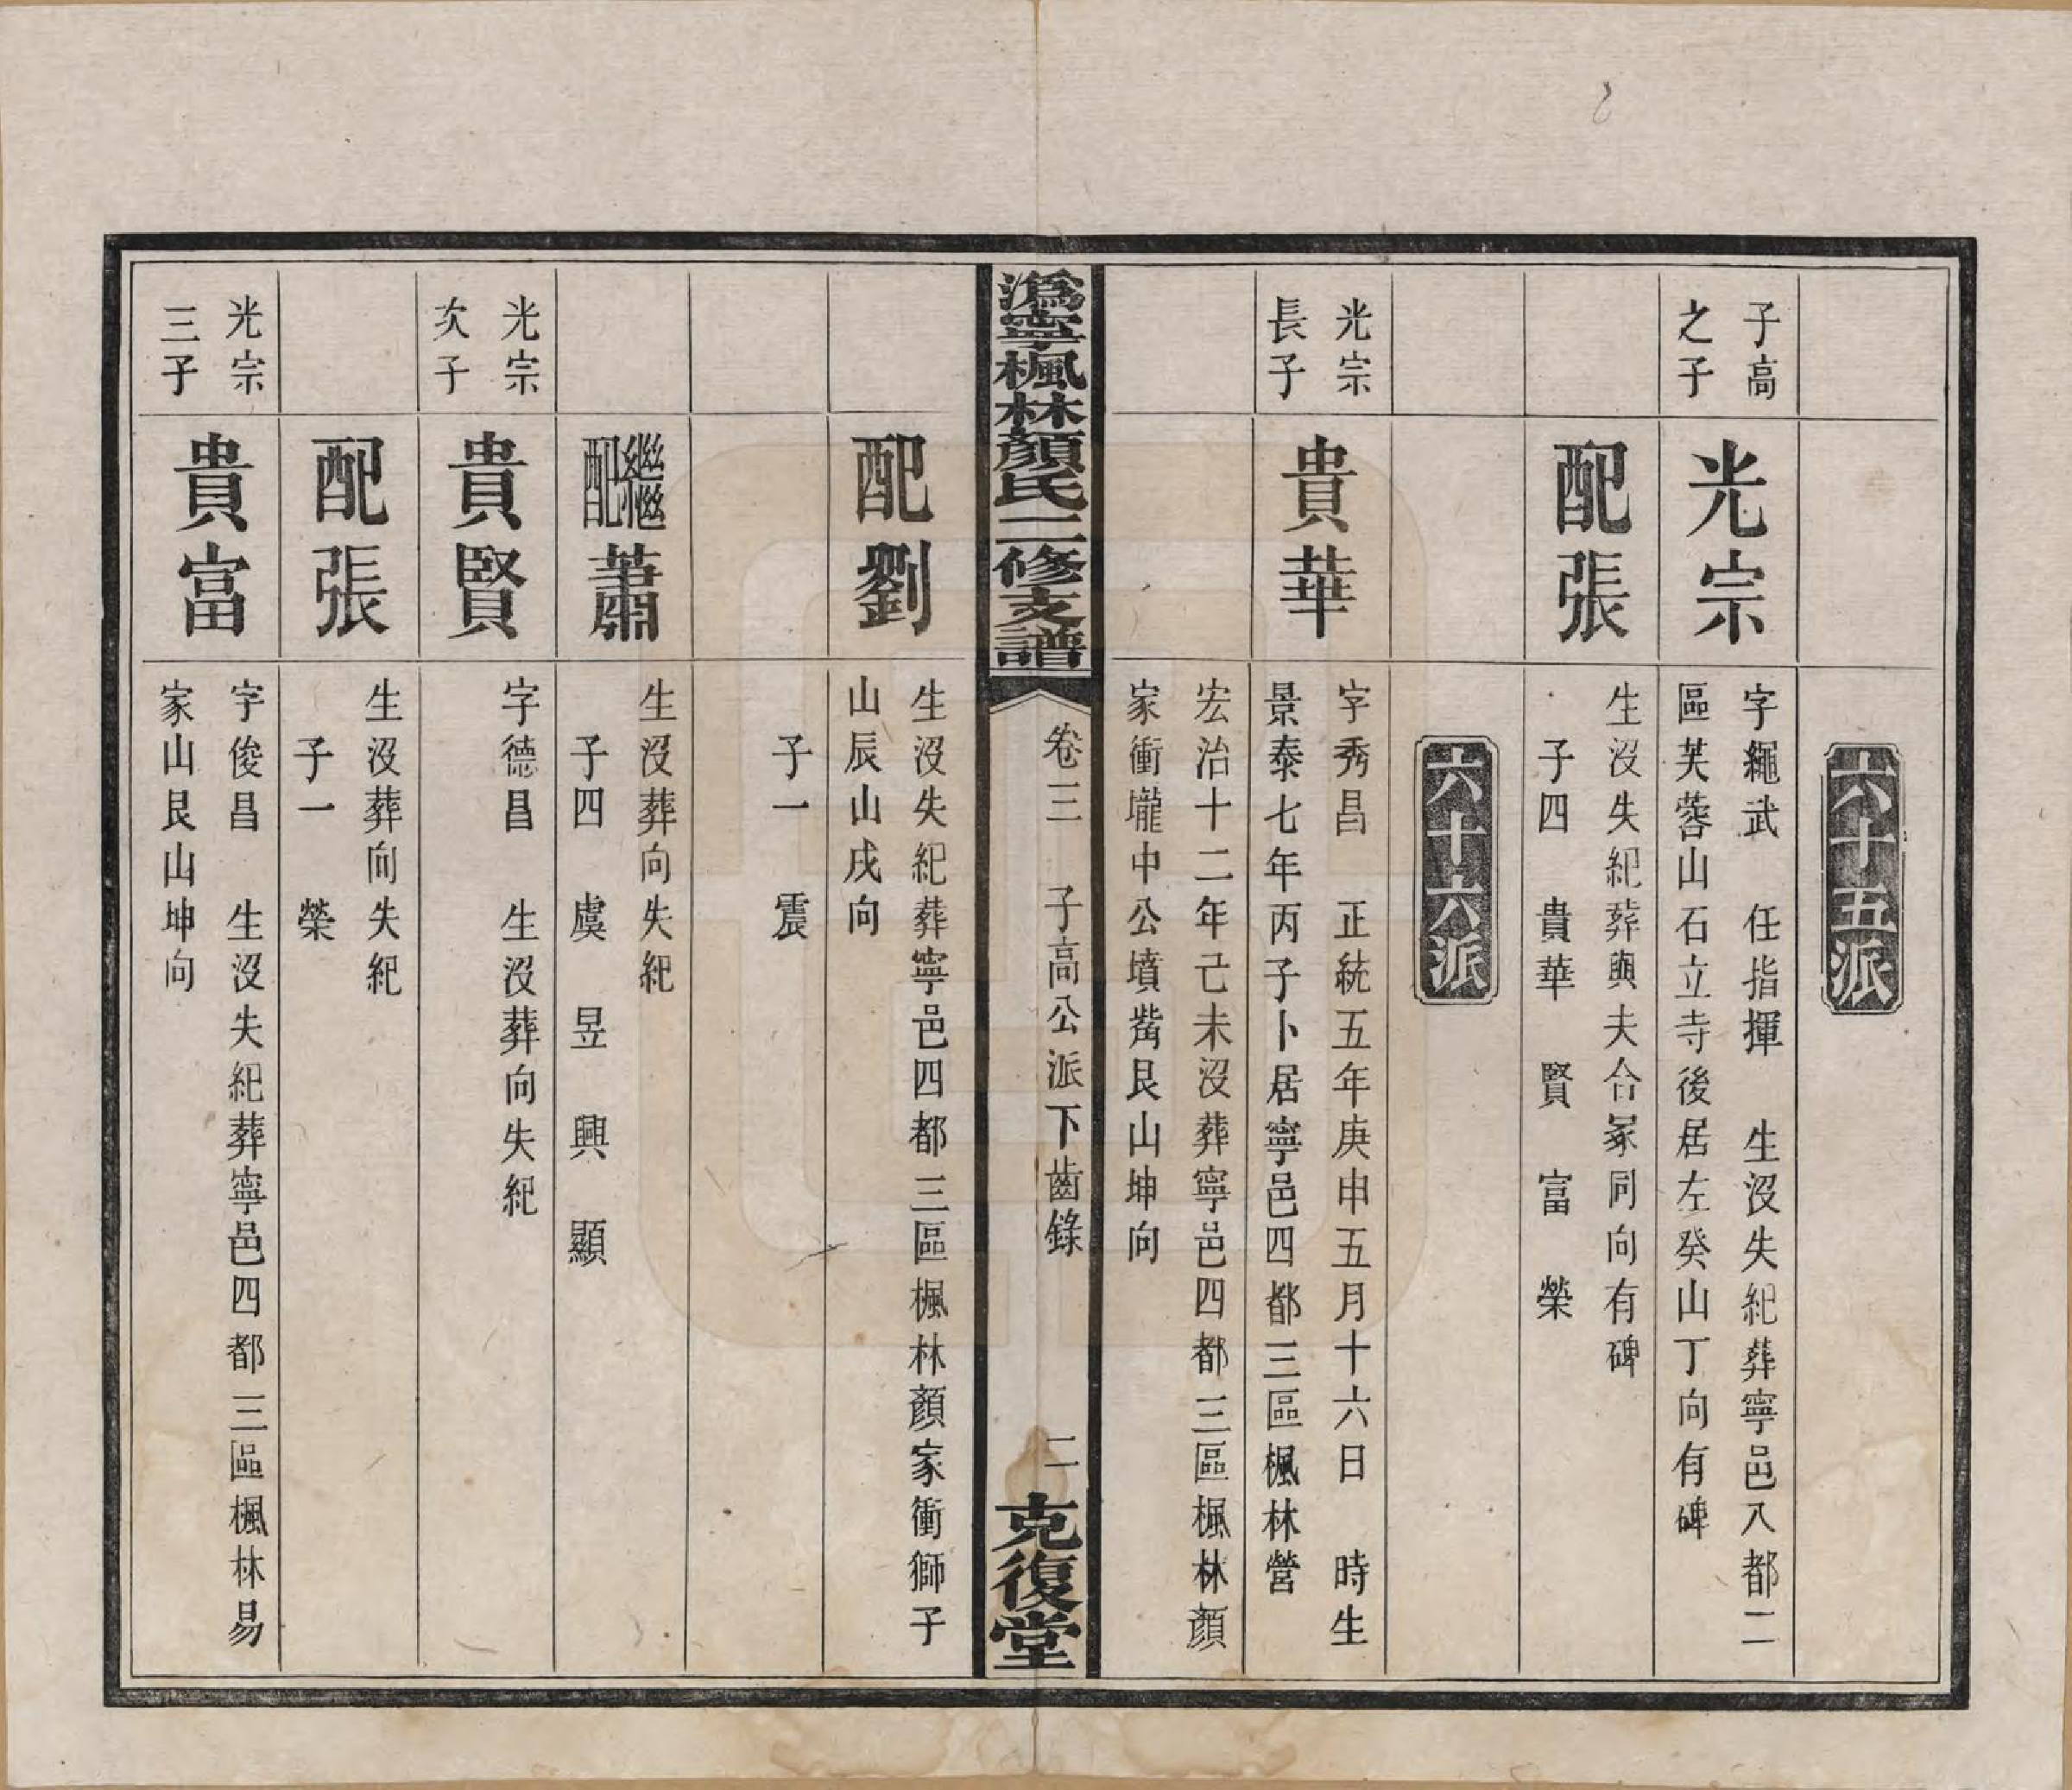 六十五派
子高
之子
光宗
字繩武　任指揮　生沒失紀葬寧邑入都二
區芙蓉山石立寺後居左癸山丁向有碑
配張
生沒失紀葬與夫合冢同向有碑
子四　貴華　賢　富　榮
六十六派
光宗
長子
貴華
字秀昌　正統五年庚申五月十六日　時生
景泰七年丙子卜居寧邑四都三區楓林營
宏治十二年己未沒葬寧邑四都三區楓林顏
家衝壠中公墳觜艮山坤向
溈寧楓林顏氏二修支譜
卷三　子高公派下齒錄
二
克復堂
配劉
生沒失紀葬寧邑四都三區楓林顏家衝獅子
山辰山戌向
子一　震
繼配蕭
生沒葬向失紀
子四　虞　昱　興　顯
光宗
次子
貴賢
字德昌　生沒葬向失紀
配張
生沒葬向失紀
子一　榮
光宗
三子
貴富
字俊昌　生沒失紀葬寧邑四都三區楓林易
家山艮山坤向